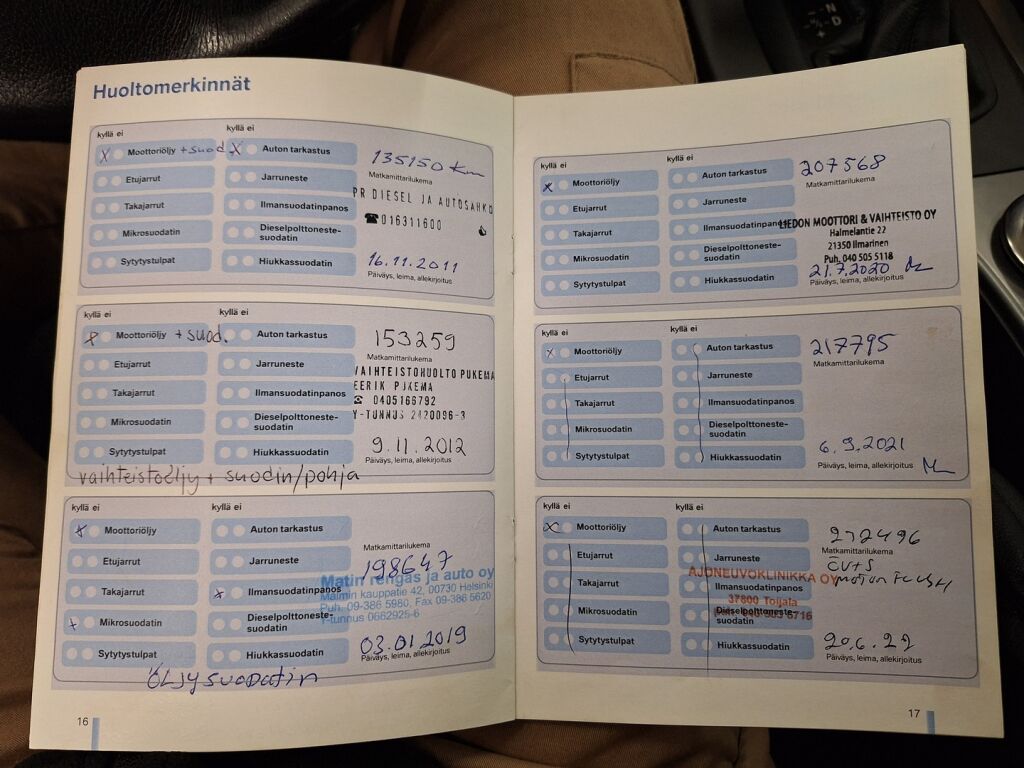 N
D
Huoltomerkinnät
kyllä ei kyllä ei
X Moottoriöljy + suod. X Auton tarkastus
Etujarrut Jarruneste
Takajarrut Ilmansuodatinpanos
Mikrosuodatin Dieselpolttoneste-
suodatin
Sytytystulpat Hiukkassuodatin
135150 km
Matkamittarilukema
PR DIESEL JA AUTOSAHKO
☎ 016311600
16.11.2011
Päiväys, leima, allekirjoitus
kyllä ei kyllä ei
X Moottoriöljy + suod. Auton tarkastus
Etujarrut Jarruneste
Takajarrut Ilmansuodatinpanos
Mikrosuodatin Dieselpolttoneste-
suodatin
Sytytystulpat Hiukkassuodatin
153259
Matkamittarilukema
VAIHTEISTOHUOLTO PUKEMA
EERIK PUKEMA
☎ 0405166792
Y-TUNNUS 2420096-3
9.11.2012
Päiväys, leima, allekirjoitus
vaihteistoöljy + suodin/pohja
kyllä ei kyllä ei
X Moottoriöljy Auton tarkastus
Etujarrut Jarruneste
Takajarrut X Ilmansuodatinpanos
X Mikrosuodatin Dieselpolttoneste-
suodatin
Sytytystulpat Hiukkassuodatin
Matkamittarilukema
198647
Matin rengas ja auto oy
Malmin kauppatie 42, 00730 Helsinki
Puh. 09-386 5980, Fax 09-386 5620
Y-tunnus 0662925-6
03.01.2019
Päiväys, leima, allekirjoitus
ÖLJYSUODATIN
16
kyllä ei kyllä ei
X Moottoriöljy Auton tarkastus
Etujarrut Jarruneste
Takajarrut Ilmansuodatinpanos
Mikrosuodatin Dieselpolttoneste-
suodatin
Sytytystulpat Hiukkassuodatin
207568
Matkamittarilukema
LIEDON MOOTTORI & VAIHTEISTO OY
Halmelantie 22
21350 Ilmarinen
Puh. 040 505 5118
21.7.2020
Päiväys, leima, allekirjoitus
kyllä ei kyllä ei
X Moottoriöljy Auton tarkastus
Etujarrut Jarruneste
Takajarrut Ilmansuodatinpanos
Mikrosuodatin Dieselpolttoneste-
suodatin
Sytytystulpat Hiukkassuodatin
217795
Matkamittarilukema
6.9.2021
Päiväys, leima, allekirjoitus
kyllä ei kyllä ei
X Moottoriöljy Auton tarkastus
Etujarrut Jarruneste
Takajarrut Ilmansuodatinpanos
Mikrosuodatin Dieselpolttoneste-
suodatin
Sytytystulpat Hiukkassuodatin
Matkamittarilukema
AJONEUVOKLINIKKA OY
37800 Toijala
20.6.22
Päiväys, leima, allekirjoitus
17